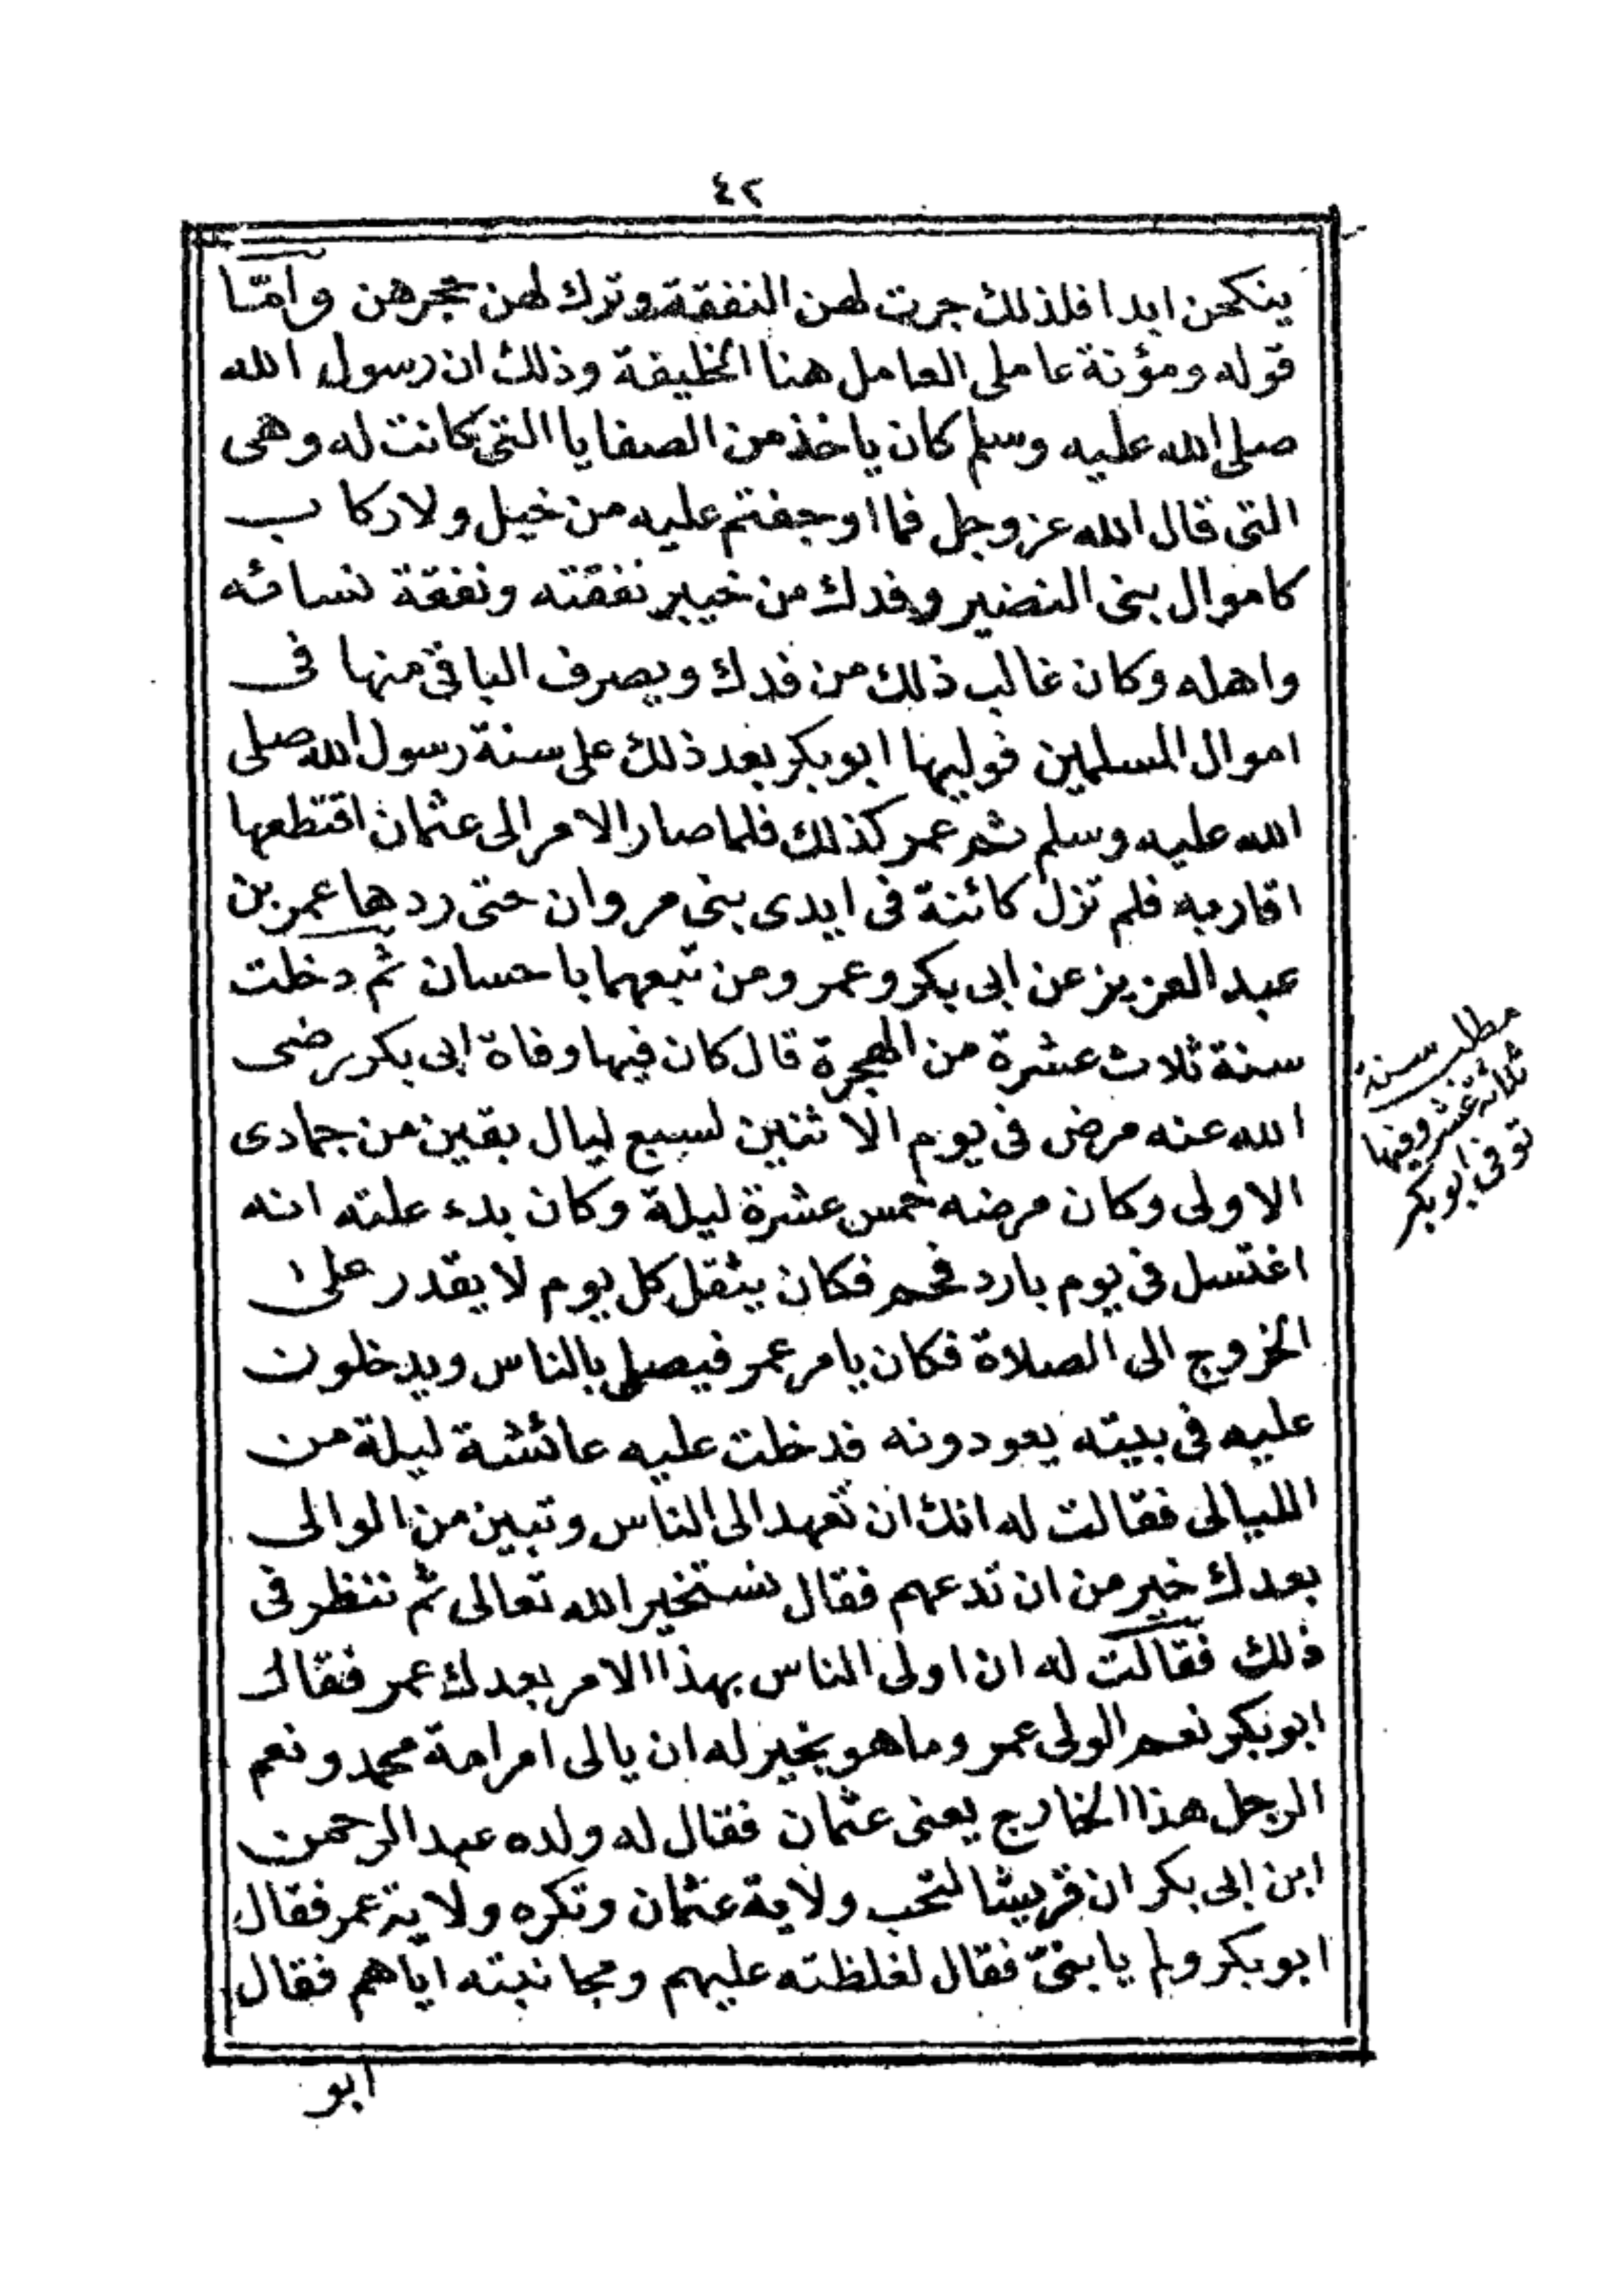 ٤٢
ينكحن ابدا فلذلك جرت لهن النفقة وترك لهن حجرهن وامّا
قوله ومؤنة عاملى العامل هنا الخليفة وذلك ان رسول الله
صلى الله عليه وسلم كان ياخذ من الصفايا التى كانت له وهى
التى قال الله عز وجل فما اوجفتم عليه من خيل ولا ركاب
كاموال بنى النضير وفدك من خيبر نفقته ونفقة نسائه
واهله وكان غالب ذلك من فدك ويصرف الباقى منها فى
اموال المسلمين فوليها ابو بكر بعد ذلك على سنة رسول الله صلى
الله عليه وسلم ثم عمر كذلك فلما صار الامر الى عثمان اقتطعها
اقاربه فلم تزل كائنة فى ايدى بنى مروان حتى ردها عمر بن
عبد العزيز عن ابى بكر وعمر ومن تبعهما باحسان ثم دخلت
سنة ثلاث عشرة من الهجرة قال كان فيها وفاة ابى بكر رضى
الله عنه مرض فى يوم الاثنين لسبع ليال بقين من جمادى
الاولى وكان مرضه خمس عشرة ليلة وكان بدء علته انه
اغتسل فى يوم بارد فحم فكان يثقل كل يوم لا يقدر على
الخروج الى الصلاة فكان يامر عمر فيصلى بالناس ويدخلون
عليه فى بيته يعودونه فدخلت عليه عائشة ليلة من
الليالى فقالت له انك ان تعهد الى الناس وتبين من الوالى
بعدك خير من ان تدعهم فقال نستخير الله تعالى ثم ننظر فى
ذلك فقالت له ان اولى الناس بهذا الامر بعدك عمر فقال
ابو بكر نعم الولى عمر وما هو بخير له ان يالى امر امة محمد ونعم
الرجل هذا الخارج يعنى عثمان فقال له ولده عبد الرحمن
ابن ابى بكر ان قريشا لتحب ولاية عثمان وتكره ولاية عمر فقال
ابو بكر ولم يا بنىّ فقال لغلظته عليهم ومجانبته اياهم فقال
ابو
مطلب سنة
ثلاثة عشر وفيها
توفى ابو بكر